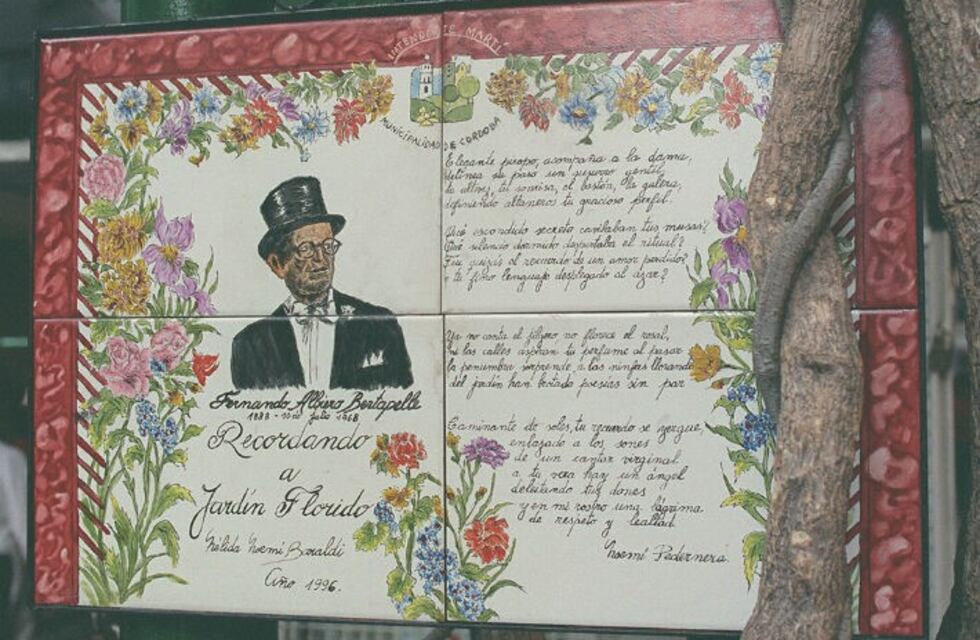 INTENDENTE MARTÍ
MUNICIPALIDAD DE CORDOBA
Fernando Albiero Bertapelle
1888 - 10 de Julio 1968
Recordando
a
Jardín Florido
Nélida Noemí Baraldi
Año 1996.
Elegante piropo, acompaña a la dama,
su paso un susurro gentil,
tu sonrisa, el bastón, la galera,
definiendo altaneros tu gracioso perfil.
¿Qué escondido secreto cavilaban tus musas?
¿Qué silencio dormido despertaba el ritual?
¿Fue quizás el recuerdo de un amor perdido?
o tu fino lenguaje desplegado al azar?
Ya no canta el jilguero no florece el rosal,
ni las calles aspiran tu perfume al pasar
la penumbra sorprende a las ninfas llorando
del jardín han brotado poesías sin par
Caminante de soles, tu recuerdo se yergue,
enlazado a los sones
de un cantar virginal
a tu vera hay un ángel
deleitando tus dones
y en mi rostro una lágrima
de respeto y lealtad.
Noemí Pedernera.